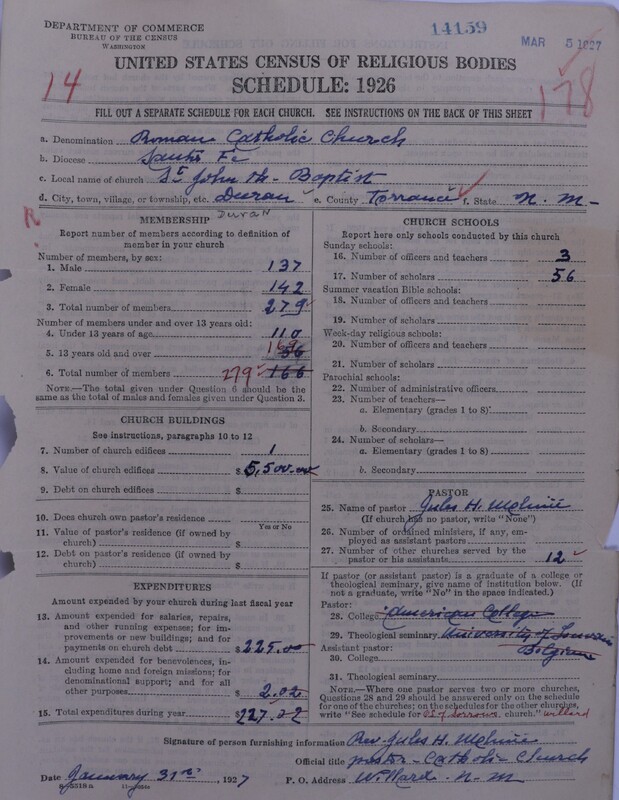 DEPARTMENT OF COMMERCE
BUREAU OF THE CENSUS
WASHINGTON
14159
MAR 5 1927
UNITED STATES CENSUS OF RELIGIOUS BODIES
SCHEDULE: 1926
14
178
FILL OUT A SEPARATE SCHEDULE FOR EACH CHURCH. SEE INSTRUCTIONS ON THE BACK OF THIS SHEET
a. Denomination Roman Catholic Church
b. Diocese Santa Fe
c. Local name of church St John the Baptist
d. City, town, village, or township, etc. Duran e. County Torrance f. State N. M-
Duran
R
MEMBERSHIP
Report number of members according to definition of member in your church
Number of members, by sex:
1. Male 137
2. Female 142
3. Total number of members 279
Number of members under and over 13 years old:
4. Under 13 years of age 110
169
5. 13 years old and over 56
6. Total number of members 279 166
NOTE.—The total given under Question 6 should be the same as the total of males and females given under Question 3.
CHURCH BUILDINGS
See instructions, paragraphs 10 to 12
7. Number of church edifices 1
8. Value of church edifices $5,500.00
9. Debt on church edifices $
10. Does church own pastor's residence
Yes or No
11. Value of pastor's residence (if owned by church) $
12. Debt on pastor's residence (if owned by church) $
EXPENDITURES
Amount expended by your church during last fiscal year
13. Amount expended for salaries, repairs, and other running expenses; for improvements or new buildings; and for payments on church debt $225.00
14. Amount expended for benevolences, including home and foreign missions; for denominational support; and for all other purposes $2.02
15. Total expenditures during year $227.02
CHURCH SCHOOLS
Report here only schools conducted by this church
Sunday schools:
16. Number of officers and teachers 3
17. Number of scholars 56
Summer vacation Bible schools:
18. Number of officers and teachers
19. Number of scholars
Week-day religious schools:
20. Number of officers and teachers
21. Number of scholars
Parochial schools:
22. Number of administrative officers
23. Number of teachers—
a. Elementary (grades 1 to 8)
b. Secondary
24. Number of scholars—
a. Elementary (grades 1 to 8)
b. Secondary
PASTOR
25. Name of pastor Jules H.
(If church has no pastor, write "None")
26. Number of ordained ministers, if any, employed as assistant pastors
27. Number of other churches served by the pastor or his assistants 12
If pastor (or assistant pastor) is a graduate of a college or theological seminary, give name of institution below. (If not a graduate, write "No" in the space indicated.)
Pastor:
28. College American College
29. Theological seminary University of Louvain
Assistant pastor: Belgium
30. College
31. Theological seminary
NOTE.—Where one pastor serves two or more churches, Questions 28 and 29 should be answered only on the schedule for one of the churches; on the schedules for the other churches, write "See schedule for of Sorrows church." Willard
Signature of person furnishing information Rev. Jules H.
Official title pastor - Catholic Church
Date January 31st, 1927 P. O. Address Willard - N. M